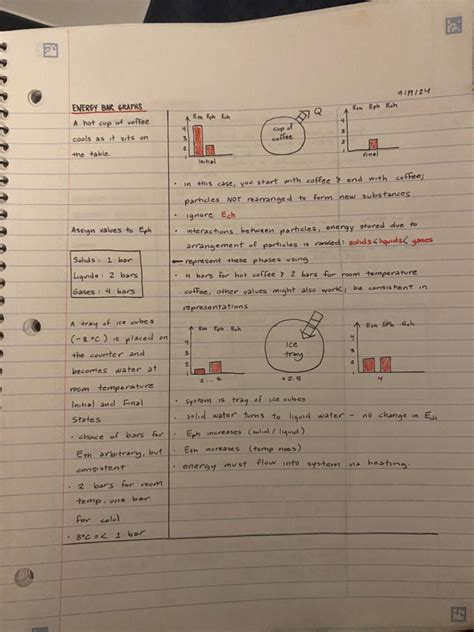 9/19/24
ENERGY BAR GRAPHS
A hot cup of coffee
cools as it sits on
the table.
Eth Eph Ech
4
3
2
1
Initial
cup of
coffee
Q
Eth Eph Ech
4
3
2
1
Final
• in this case, you start with coffee & end with coffee;
particles NOT rearranged to form new substances
• ignore Ech
Assign values to Eph
Solids: 1 bar
Liquids: 2 bars
Gases: 4 bars
• interactions between particles, energy stored due to
arrangement of particles is ranked: solids<liquids< gases
represent these phases using
• 4 bars for hot coffee & 2 bars for room temperature
coffee, other values might also work; be consistent in
representations
A tray of ice cubes
(-8 °C) is placed on
the counter and
becomes water at
room temperature
Initial and Final
States
• choice of bars for
Eth arbitrary, but
consistent
• 2 bars for room
temp, one bar
for cold
Eth Eph Ech
4
3
2
1
ice
tray
+2.5
Eth Eph Ech
4
3
2
1
4
• system is tray of ice cubes
• solid water turns to liquid water - no change in Ech
• Eph increases (solid/liquid)
• Eth increases (temp rises)
• energy must flow into system via heating.